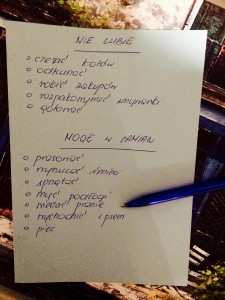 NIE LUBIĘ
czesać kotów
odkurzać
robić zakupów
rozpakowywać zmywarki
gotować
MOGĘ W ZAMIAN
prasować
wyrzucać śmieci
sprzątać
myć podłogi
wieszać pranie
wychodzić z psem
piec